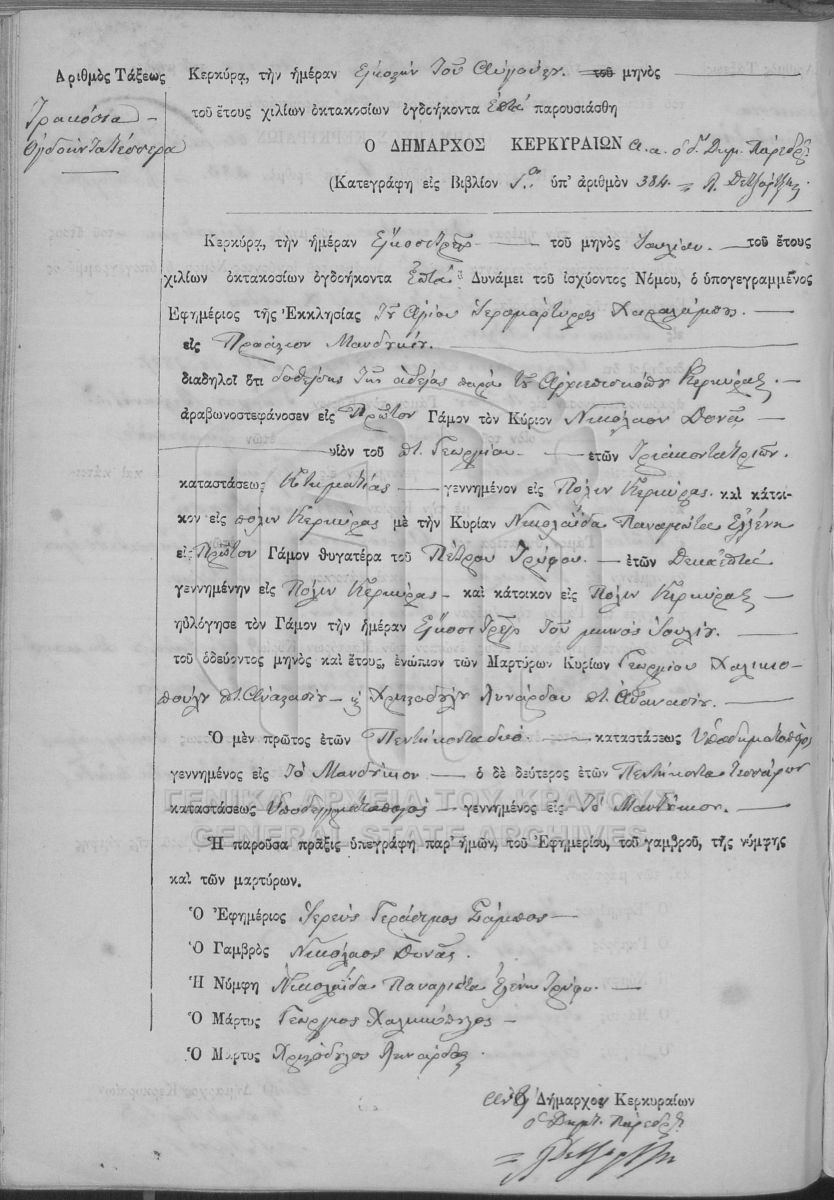 Ἀριθμὸς Τάξεως
Τριακόσια
Ὀγδοήντα τέσσερα
Κερκύρᾳ, τὴν ἡμέραν τοῦ Αὐγούστου τοῦ μηνὸς
τοῦ ἔτους χιλίων ὀκτακοσίων ὀγδοήκοντα Ἑπτὰ παρουσιάσθη
Ο ΔΗΜΑΡΧΟΣ ΚΕΡΚΥΡΑΙΩΝ α.α. ὁ Δημ. Πάρεδρος
(Κατεγράφη εἰς Βιβλίον ὑπ' ἀριθμὸν 384
Κερκύρᾳ, τὴν ἡμέραν Εἴκοσι τρεῖς τοῦ μηνὸς Ἰουλίου τοῦ ἔτους
χιλίων ὀκτακοσίων ὀγδοήκοντα Ἑπτὰ Δυνάμει τοῦ ἰσχύοντος Νόμου, ὁ ὑπογεγραμμένος
Ἐφημέριος τῆς Ἐκκλησίας τοῦ Ἁγίου Ἱερομάρτυρος Χαραλάμπους
εἰς Προάστιον Μανδύκιον
διαδηλοῖ ὅτι δοθείσης τῆς ἀδείας παρὰ τοῦ Ἀρχιεπισκόπου Κερκύρας
ἀραβωνοστεφάνοσεν εἰς Πρῶτον Γάμον τὸν Κύριον Νικόλαον Δονᾶ
υἱὸν τοῦ ποτ. Γεωργίου ἐτῶν Τριάκοντα τριῶν
καταστάσεως Κτηματίας γεννημένον εἰς Πόλιν Κερκύρας καὶ κάτοι-
κον εἰς πόλιν Κερκύρας μὲ τὴν Κυρίαν Νικολαΐδα Παναγιώτα Ἑλένη
εἰς Πρῶτον Γάμον θυγατέρα τοῦ Πέτρου Τρύφου ἐτῶν Δεκαεπτά
γεννημένην εἰς Πόλιν Κερκύρας καὶ κάτοικον εἰς Πόλιν Κερκύρας
ηὐλόγησε τὸν Γάμον τὴν ἡμέραν Εἴκοσι τρεῖς τοῦ μηνὸς Ἰουλίου
τοῦ ὁδεύοντος μηνὸς καὶ ἔτους, ἐνώπιον τῶν Μαρτύρων Κυρίων Γεωργίου Χαλικιο-
πούλου ποτ. Ἀναστασίου κ Χριστοδούλου Λυνάρδου ποτ. Ἀθανασίου
Ὁ μὲν πρῶτος ἐτῶν Πεντήκοντα δύο καταστάσεως Ὑποδηματοποιός
γεννημένος εἰς τὸ Μανδύκιον ὁ δὲ δεύτερος ἐτῶν Πεντήκοντα τεσσάρων
καταστάσεως Ὑποδηματοποιός γεννημένος εἰς τὸ Μαντύκιον
ΓΕΝΙΚΑ ΑΡΧΕΙΑ ΤΟΥ ΚΡΑΤΟΥΣ
GENERAL STATE ARCHIVES
Ἡ παροῦσα πρᾶξις ὑπεγράφη παρ' ἡμῶν, τοῦ Ἐφημερίου, τοῦ γαμβροῦ, τῆς νύμφης
καὶ τῶν μαρτύρων.
Ὁ Ἐφημέριος Ἱερεὺς Γεράσιμος
Ὁ Γαμβρὸς Νικόλαος Δονᾶς
Ἡ Νύμφη Νικολαΐδα Παναγιότα Ἑλένη Τρύφου
Ὁ Μάρτυς Γεώργιος Χαλικιόπουλος
Ὁ Μάρτυς Χριστόδουλος Λυνάρδος
Δήμαρχος Κερκυραίων
ὁ Δημ. Πάρεδρος